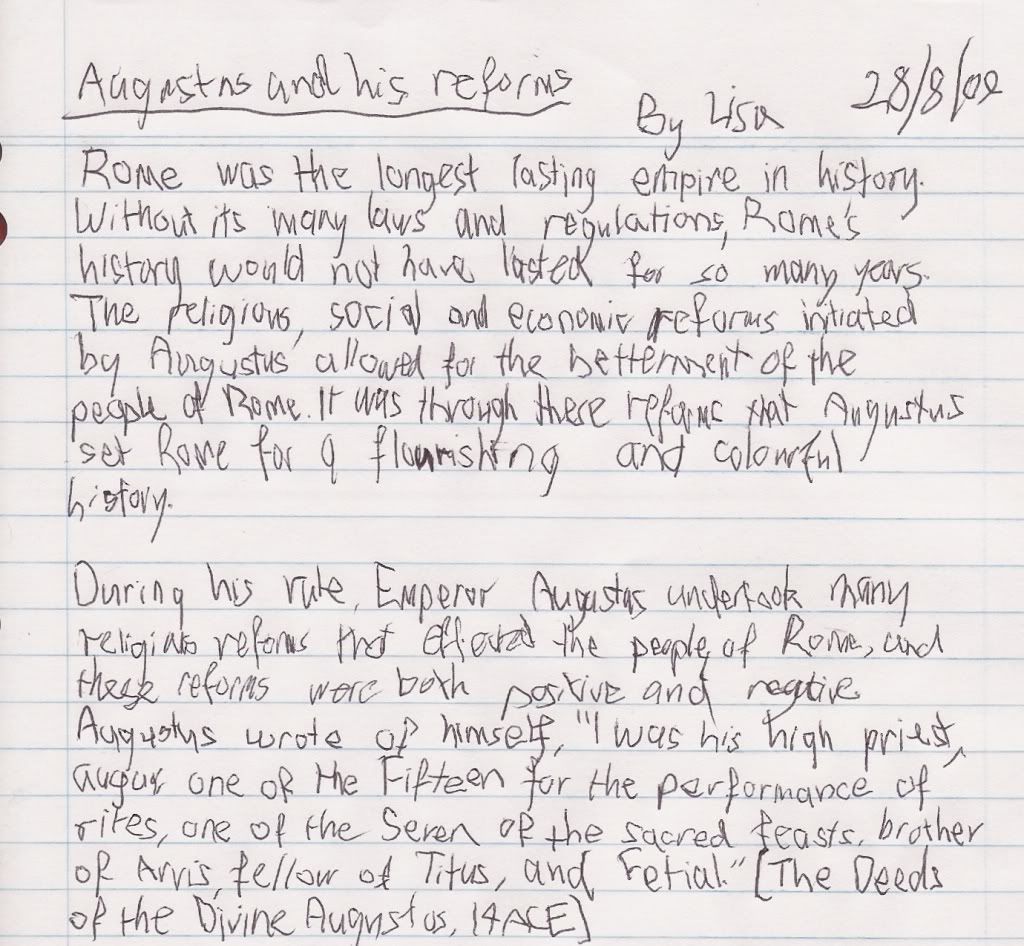 Augustus and his reforms
By Lisa
28/8/09
Rome was the longest lasting empire in history.
Without its many laws and regulations, Rome's
history would not have lasted for so many years.
The religious, social and economic reforms initiated
by Augustus allowed for the betterment of the
people of Rome. It was through these reforms that Augustus
set Rome for a flourishing and colourful
history.
During his rule, Emperor Augustus undertook many
religious reforms that effected the people of Rome, and
these reforms were both positive and negative
Augustus wrote of himself, "I was his high priest,
augur one of the Fifteen for the performance of
rites, one of the Seven of the sacred feasts, brother
of Arvis, fellow of Titus, and Fetial." [The Deeds
of the Divine Augustus, 14ACE]